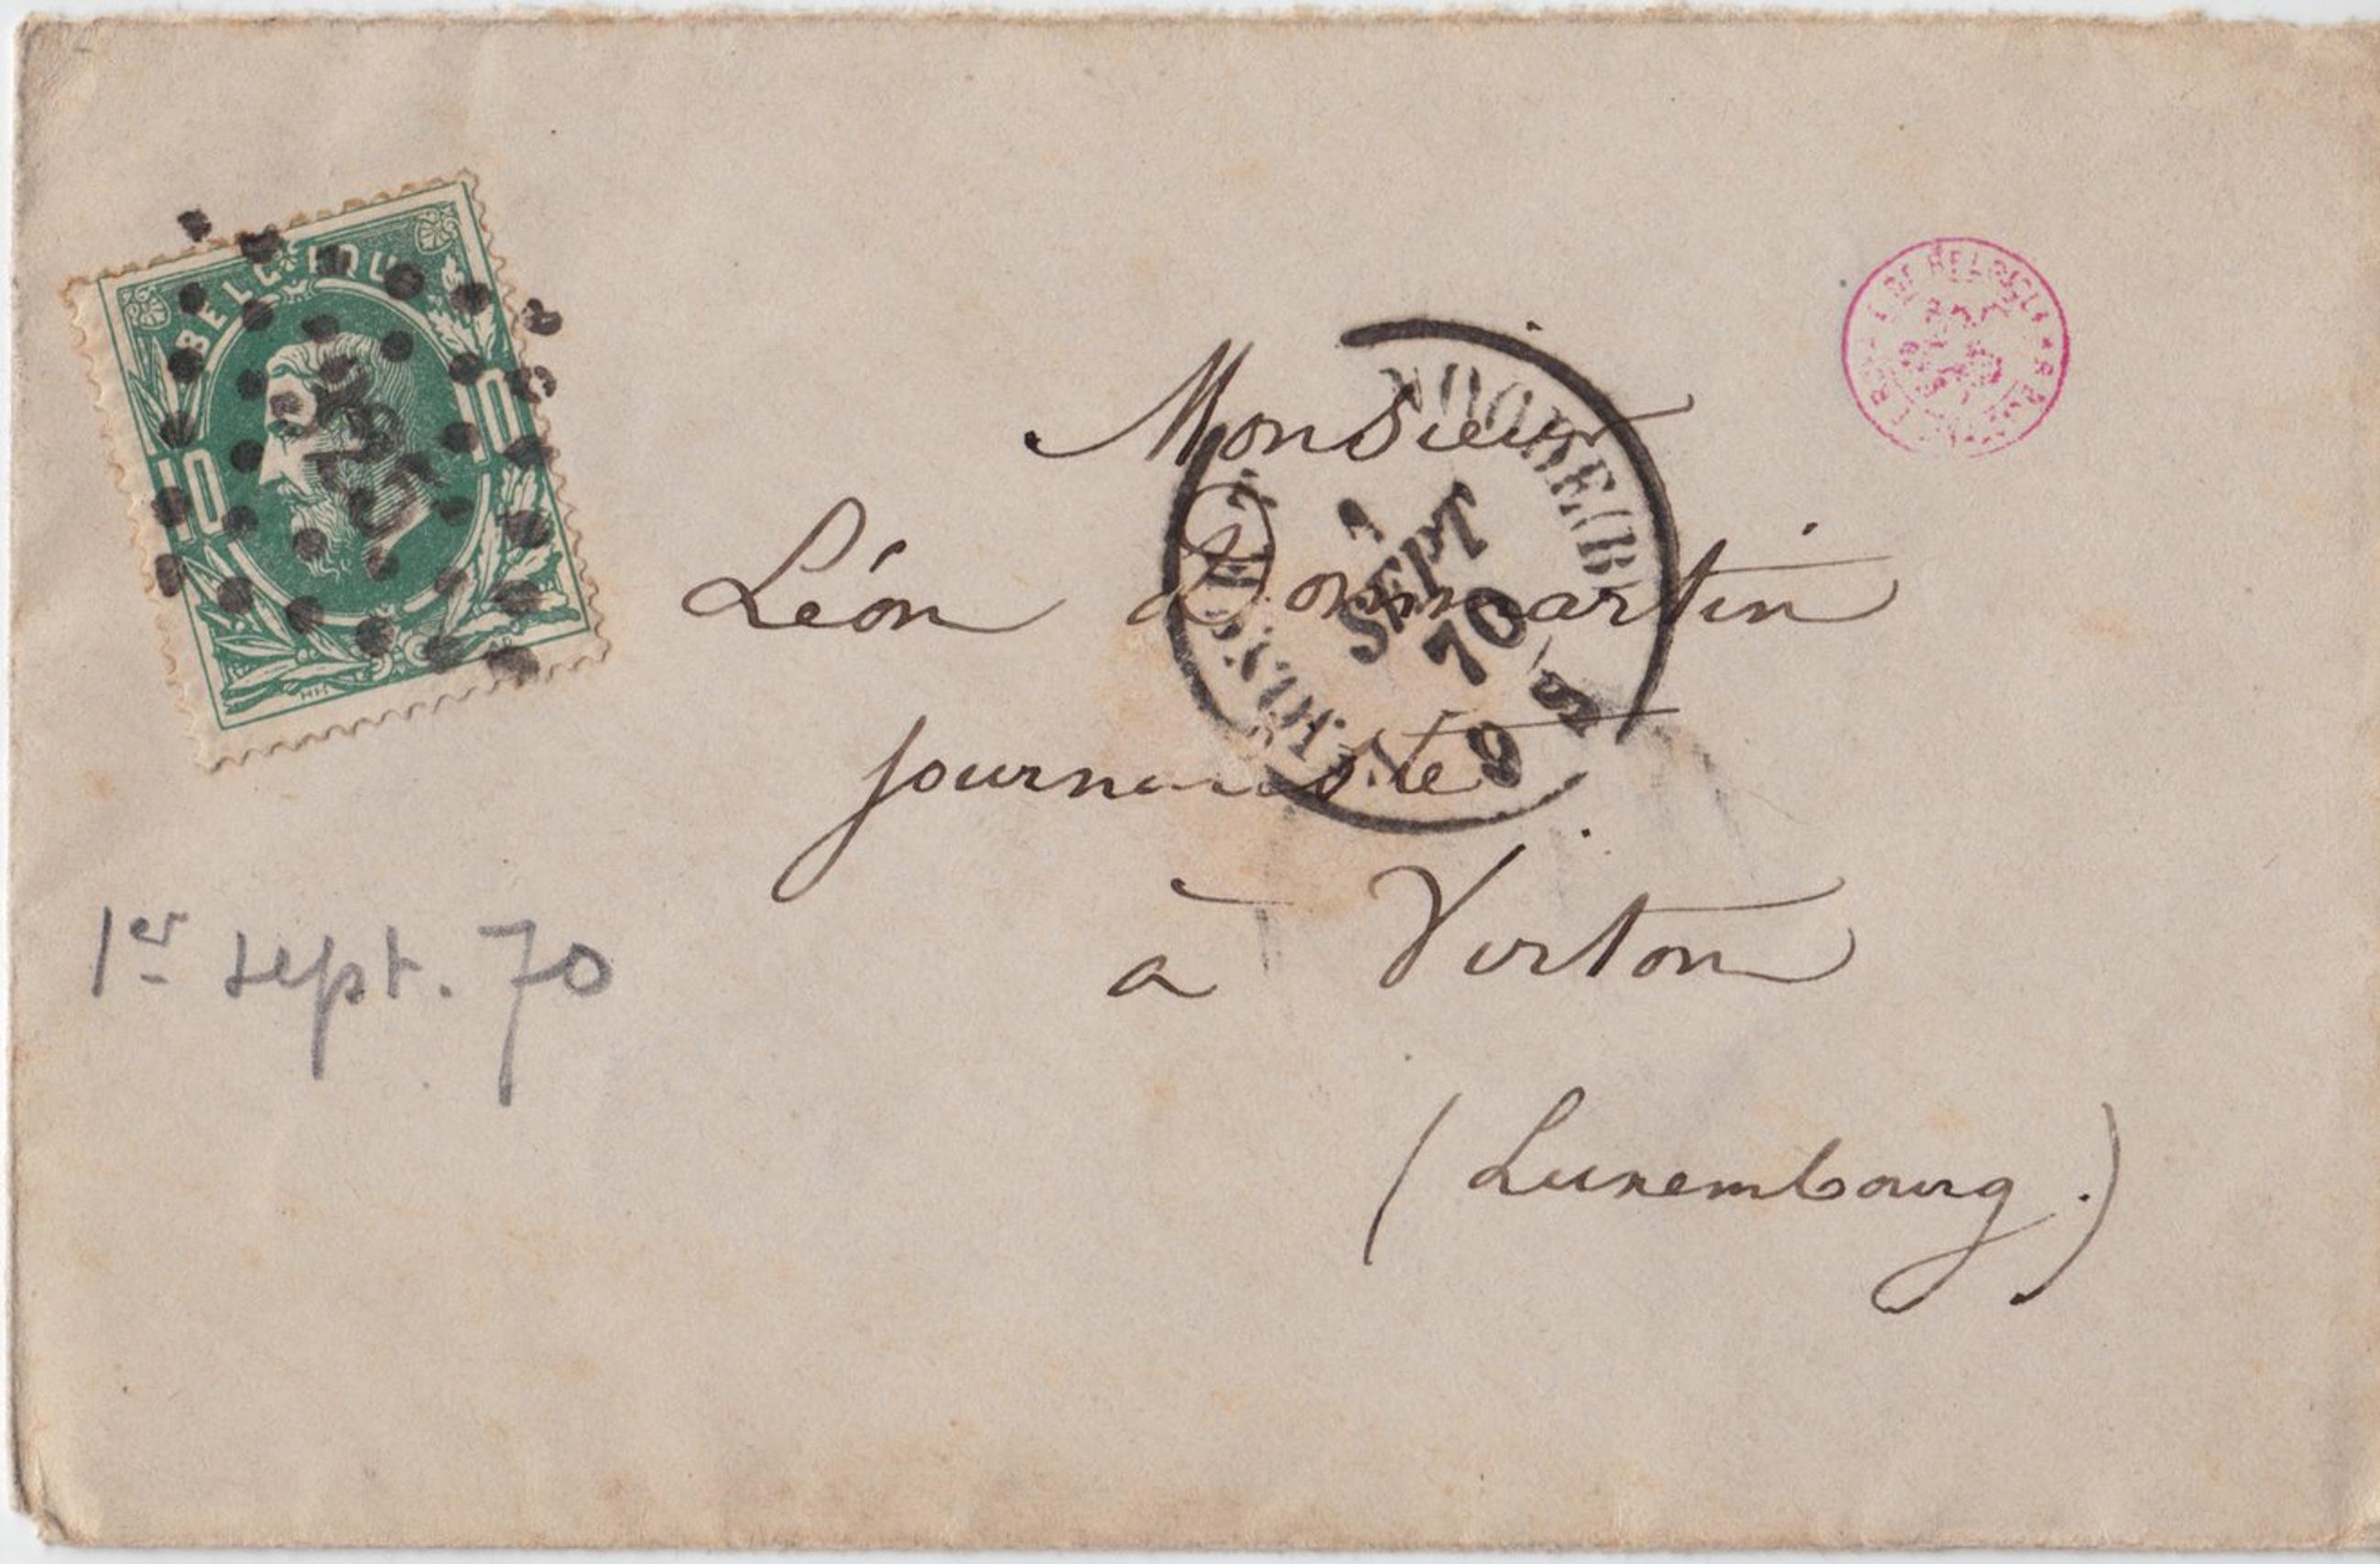 BELGIQUE
10 10
Monsieur
Léon dommartin
journaliste
à Virton
(Luxembourg.)
1
SEPT
70
1er sept. 70